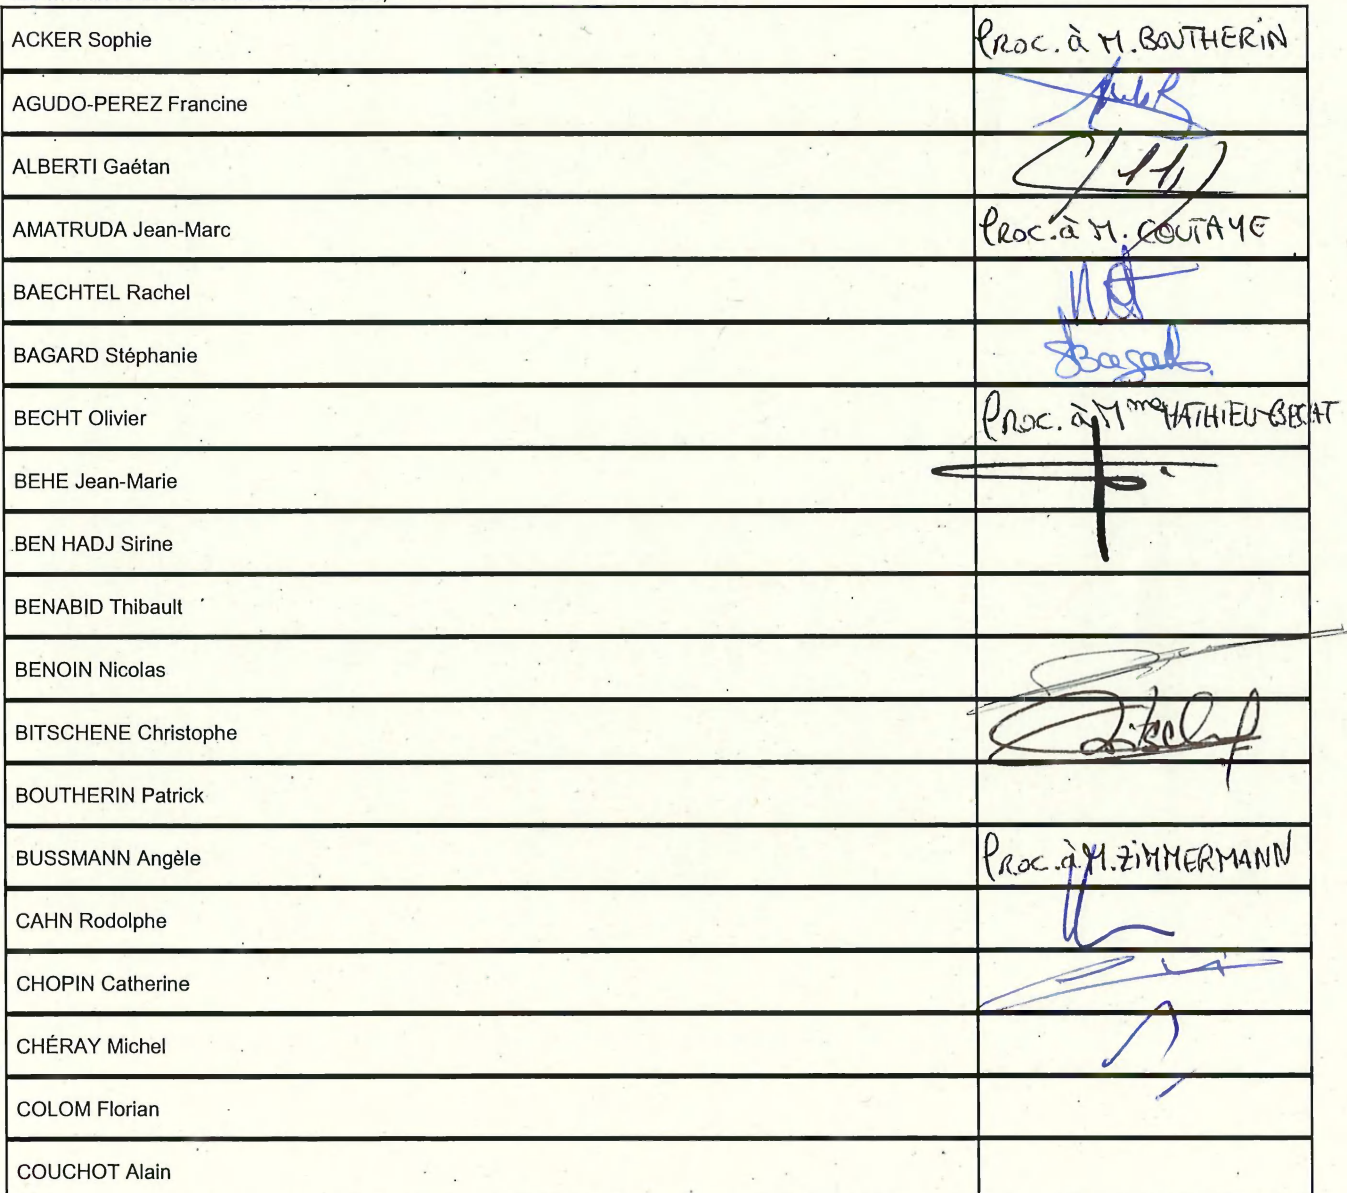 ACKER Sophie
Proc. à M. BOUTHERIN
AGUDO-PEREZ Francine
ALBERTI Gaétan
AMATRUDA Jean-Marc
Proc. à M. COUTAYE
BAECHTEL Rachel
BAGARD Stéphanie
SBagard
BECHT Olivier
Proc. à Mme MATHIEU-BECHT
BEHE Jean-Marie
BEN HADJ Sirine
BENABID Thibault
BENOIN Nicolas
BITSCHENE Christophe
BOUTHERIN Patrick
BUSSMANN Angèle
Proc. à M. ZIMMERMANN
CAHN Rodolphe
CHOPIN Catherine
CHÉRAY Michel
COLOM Florian
COUCHOT Alain